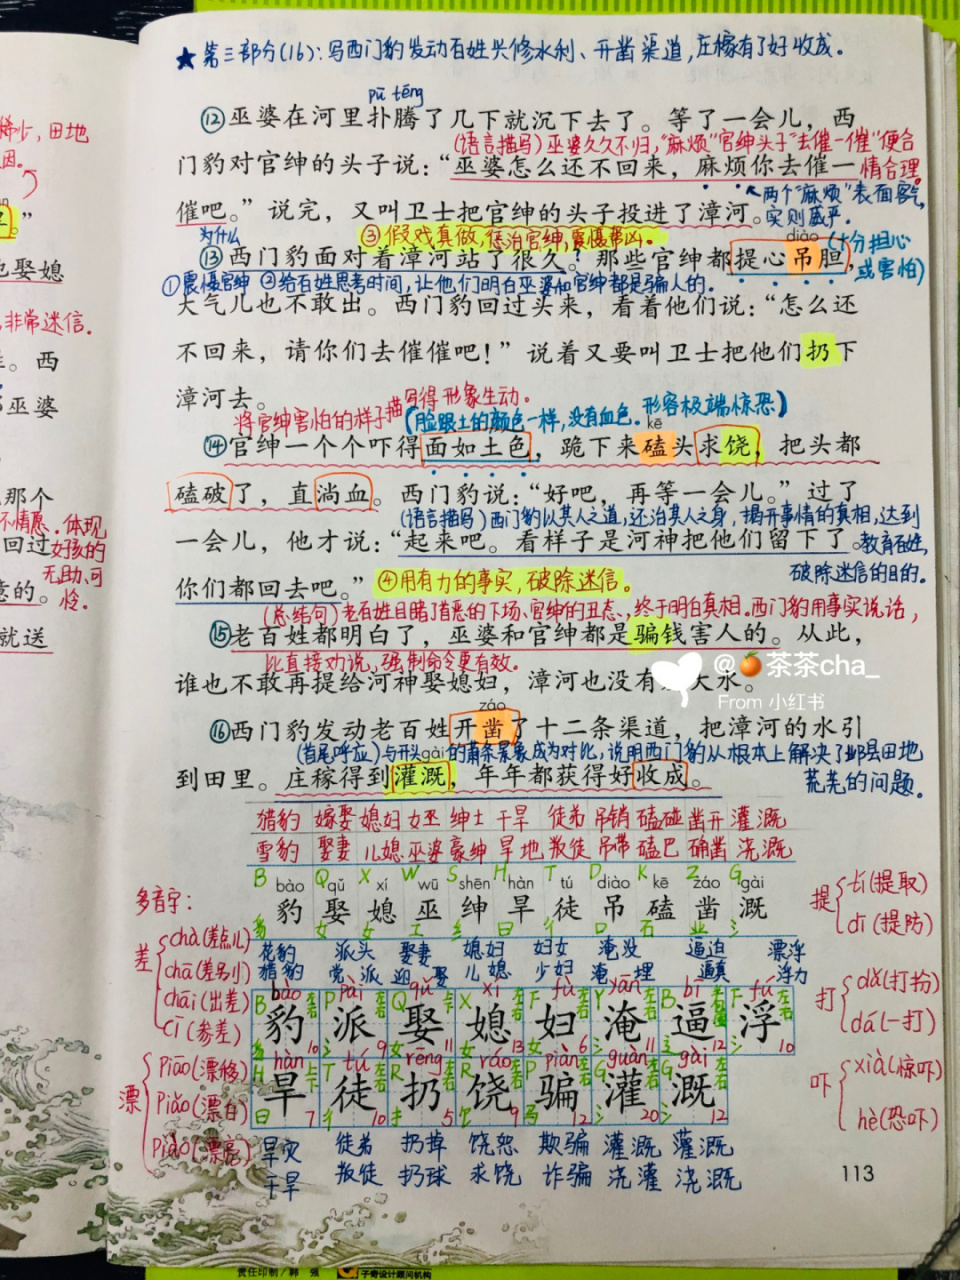 ★第三部分(16):写西门豹发动百姓兴修水利、开凿渠道,庄稼有了好收成。
pū téng
⑫巫婆在河里扑腾了几下就沉下去了。等了一会儿,西
(语言描写)巫婆久久不归,“麻烦”官绅头子“去催一催”便合
门豹对官绅的头子说:“巫婆怎么还不回来,麻烦你去催一
情合理。
两个“麻烦”表面客气,
催吧。”说完,又叫卫士把官绅的头子投进了漳河。
实则威严。
为什么
③假戏真做,惩治官绅,震慑帮凶。
diào
(十分担心
⑬西门豹面对着漳河站了很久?那些官绅都提心吊胆,
或害怕)
①震慑官绅 ②给百姓思考时间,让他们明白巫婆和官绅都是骗人的.
大气儿也不敢出。西门豹回过头来,看着他们说:“怎么还
不回来,请你们去催催吧!”说着又要叫卫士把他们扔下
漳河去。
将官绅害怕的样子描写得形象生动.
(脸跟土的颜色一样,没有血色.形容极端惊恐)
kē
⑭官绅一个个吓得面如土色,跪下来磕头求饶,把头都
磕破了,直淌血。西门豹说:“好吧,再等一会儿。”过了
(语言描写)西门豹以其人之道,还治其人之身,揭开事情的真相,达到
一会儿,他才说:“起来吧。看样子是河神把他们留下了。
教育百姓,
破除迷信的目的.
你们都回去吧。”
④用有力的事实,破除迷信。
(总结句)老百姓目睹了首恶的下场、官绅的丑态,终于明白真相.西门豹用事实说话,
⑮老百姓都明白了,巫婆和官绅都是骗钱害人的。从此,
比直接劝说、强制命令更有效.
谁也不敢再提给河神娶媳妇,漳河也没有大水。
@🍊茶茶cha_
From 小红书
záo
⑯西门豹发动老百姓开凿了十二条渠道,把漳河的水引
(首尾呼应)与开头的萧条景象成为对比,说明西门豹从根本上解决了邺县田地
gài
到田里。庄稼得到灌溉,年年都获得好收成。
荒芜的问题.
猎豹 嫁娶 媳妇 女巫 绅士 干旱 徒弟 吊销 磕碰 凿开 灌溉
雪豹 娶妻 儿媳 巫婆 豪绅 旱地 叛徒 吊带 磕巴 确凿 浇溉
B Q X W S H T D K Z G
bào qǔ xí wū shēn hàn tú diào kē záo gài
豹 娶 媳 巫 绅 旱 徒 吊 磕 凿 溉
豸 女 女 工 纟 日 彳 口 石 业 氵
花豹 派头 娶妻 媳妇 妇女 淹没 逼迫 漂浮
猎豹 党派 迎娶 儿媳 少妇 淹埋 逼真 浮力
bào pài qǔ xí fù yān bī fú
豹 派 娶 媳 妇 淹 逼 浮
10 9 11 13 6 11 12 10
hàn tú rēng ráo piàn guàn gài
旱 徒 扔 饶 骗 灌 溉
7 10 5 9 12 20 12
旱灾 徒弟 扔掉 饶恕 欺骗 灌溉 灌溉
干旱 叛徒 扔球 求饶 诈骗 浇灌 浇溉
多音字:
差
chà(差点儿)
chā(差别)
chāi(出差)
cī(参差)
漂
piāo(漂移)
piǎo(漂白)
piào(漂亮)
提
tí(提取)
dī(提防)
打
dǎ(打扮)
dá(一打)
吓
xià(惊吓)
hè(恐吓)
113
”
也娶媳
非常迷信.
。西
巫婆
那个
不情愿.体现
回过
女孩的
无助、可
怜.
意的。
就送
稀少,田地
责任印制/韩 强
子奇设计顾问机构